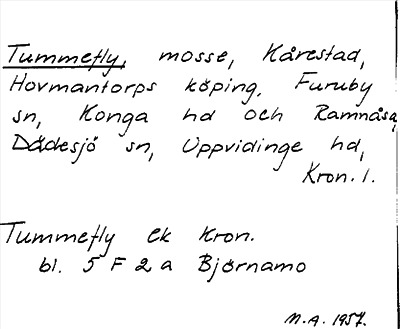 Tummefly, mosse, Kårestad,
Hovmantorps köping, Furuby
sn, Konga hd och Ramnåsa,
Dädesjö sn, Uppvidinge hd,
Kron. l.
Tummefly ek Kron.
bl. 5 F 2 a Björnamo
M.A. 1957.